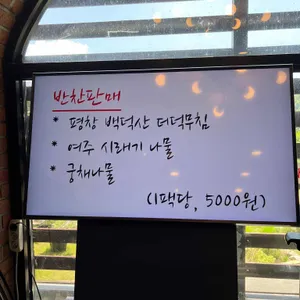 반찬판매
* 평창 백덕산 더덕무침
* 여주 시래기 나물
* 궁채나물
(1팩당, 5000원)